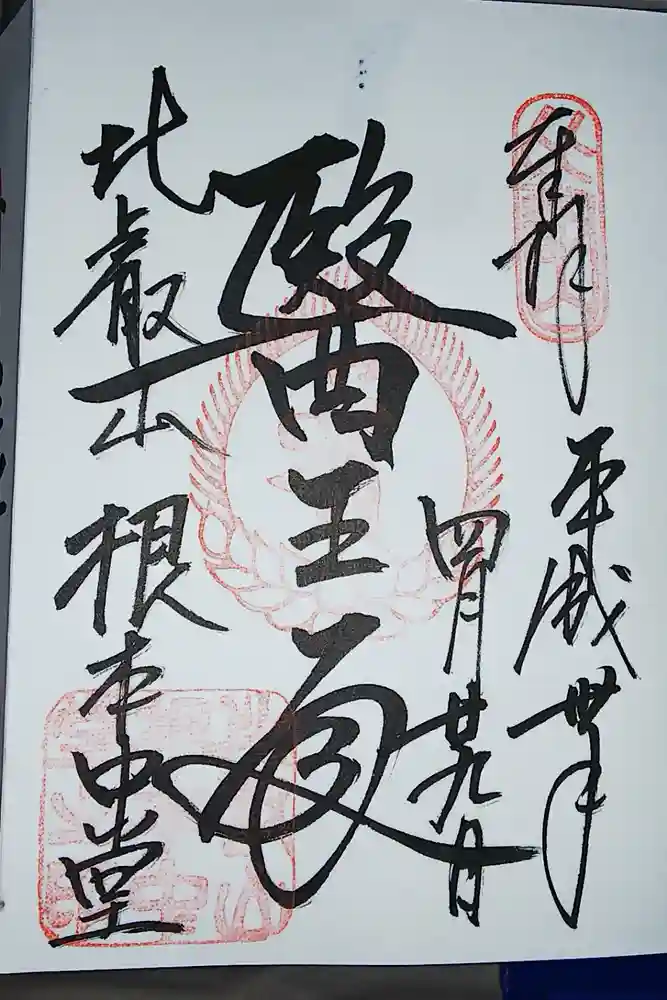 奉拝
平成卅年
四月廿九日
醫王殿
比叡山
根本中堂